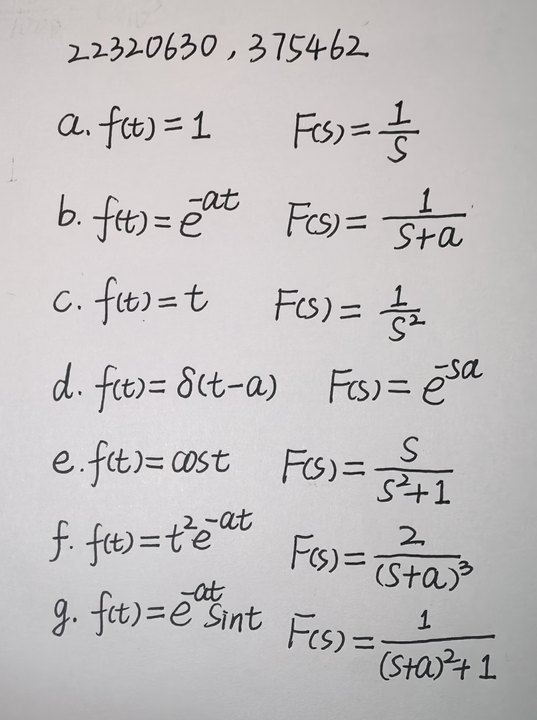 22320630, 375462
a. f(t) = 1 F(s) = 1/s
b. f(t) = e^{-at} F(s) = 1/(s+a)
c. f(t) = t F(s) = 1/s²
d. f(t) = δ(t-a) F(s) = e^{-sa}
e. f(t) = cost F(s) = s/(s²+1)
f. f(t) = t²e^{-at} F(s) = 2/(s+a)³
g. f(t) = e^{-at} sint F(s) = 1/((s+a)²+1)